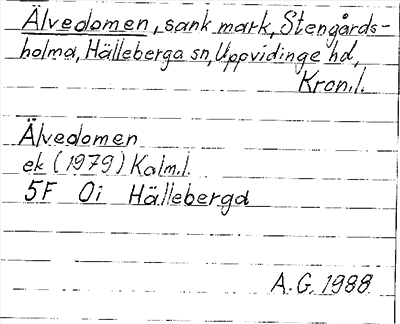 Älvedomen, sank mark, Stengårds-
holma, Hälleberga sn, Uppvidinge hd,
Kron.l.
Älvedomen
ek (1979) Kalm.l.
5F 0i Hälleberga
A.G. 1988